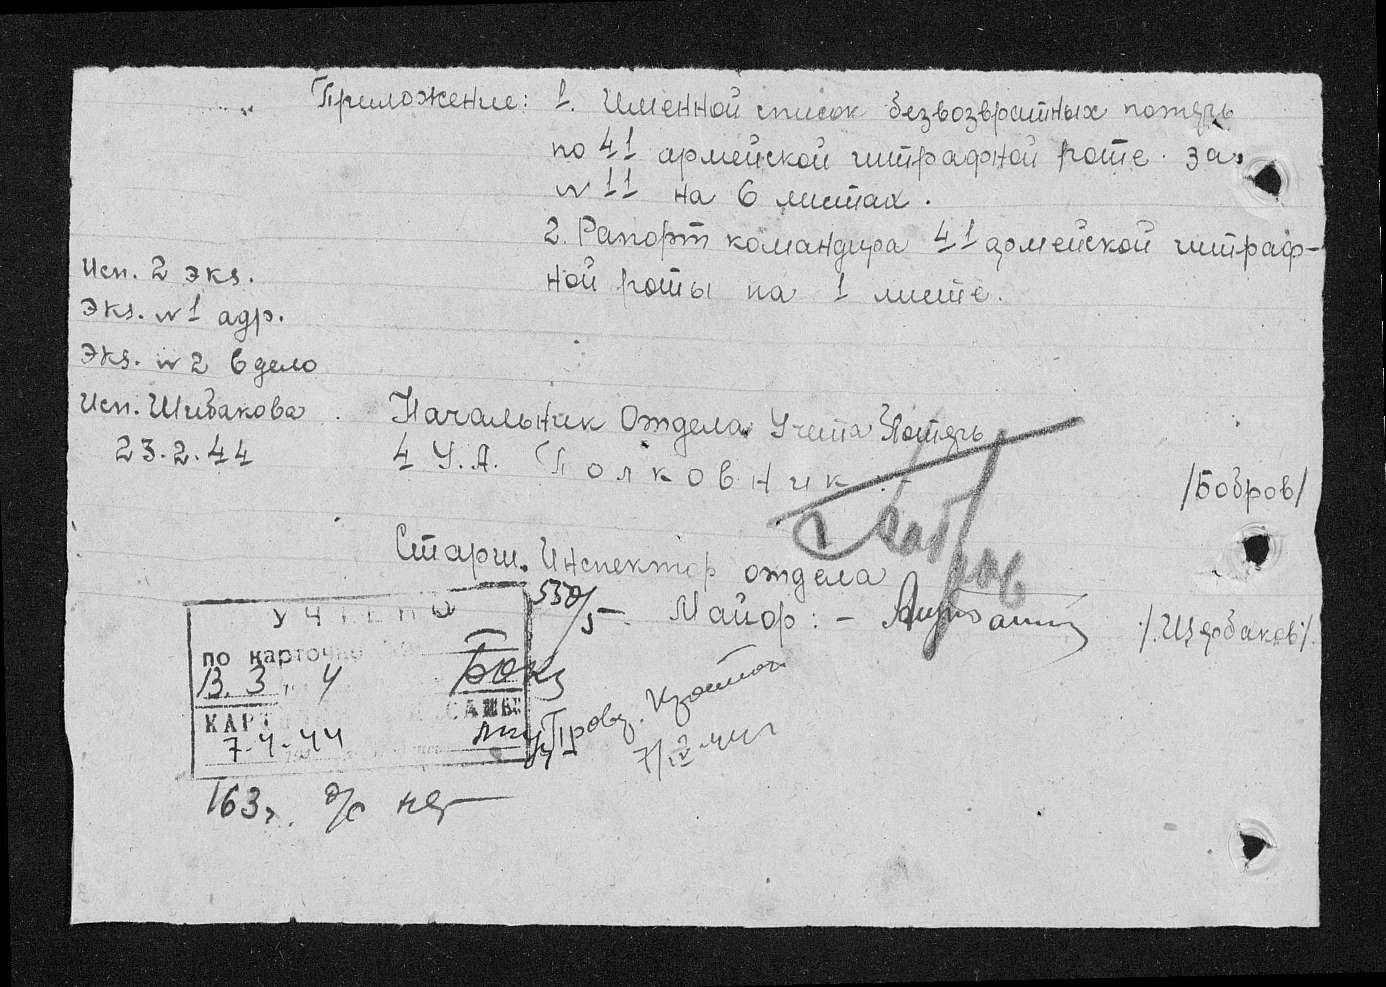 Приложение: 1. Именной список безвозвратных потерь
по 41 армейской штрафной роте за
№ 11 на 6 листах.
2. Рапорт командира 41 армейской штраф-
ной роты на 1 листе.
Исп. 2 экз.
Экз. №1 адр.
Экз. №2 в дело
Исп. Шибакова
23.2.44
Начальник Отдела Учета Потерь
4 У.А. Полковник :-
/Бобров/
Старш. Инспектор отдела
Майор: -
/Щербаков/
УЧТЕНО
по карточке
13. 3 4
7-4-44
163
нет